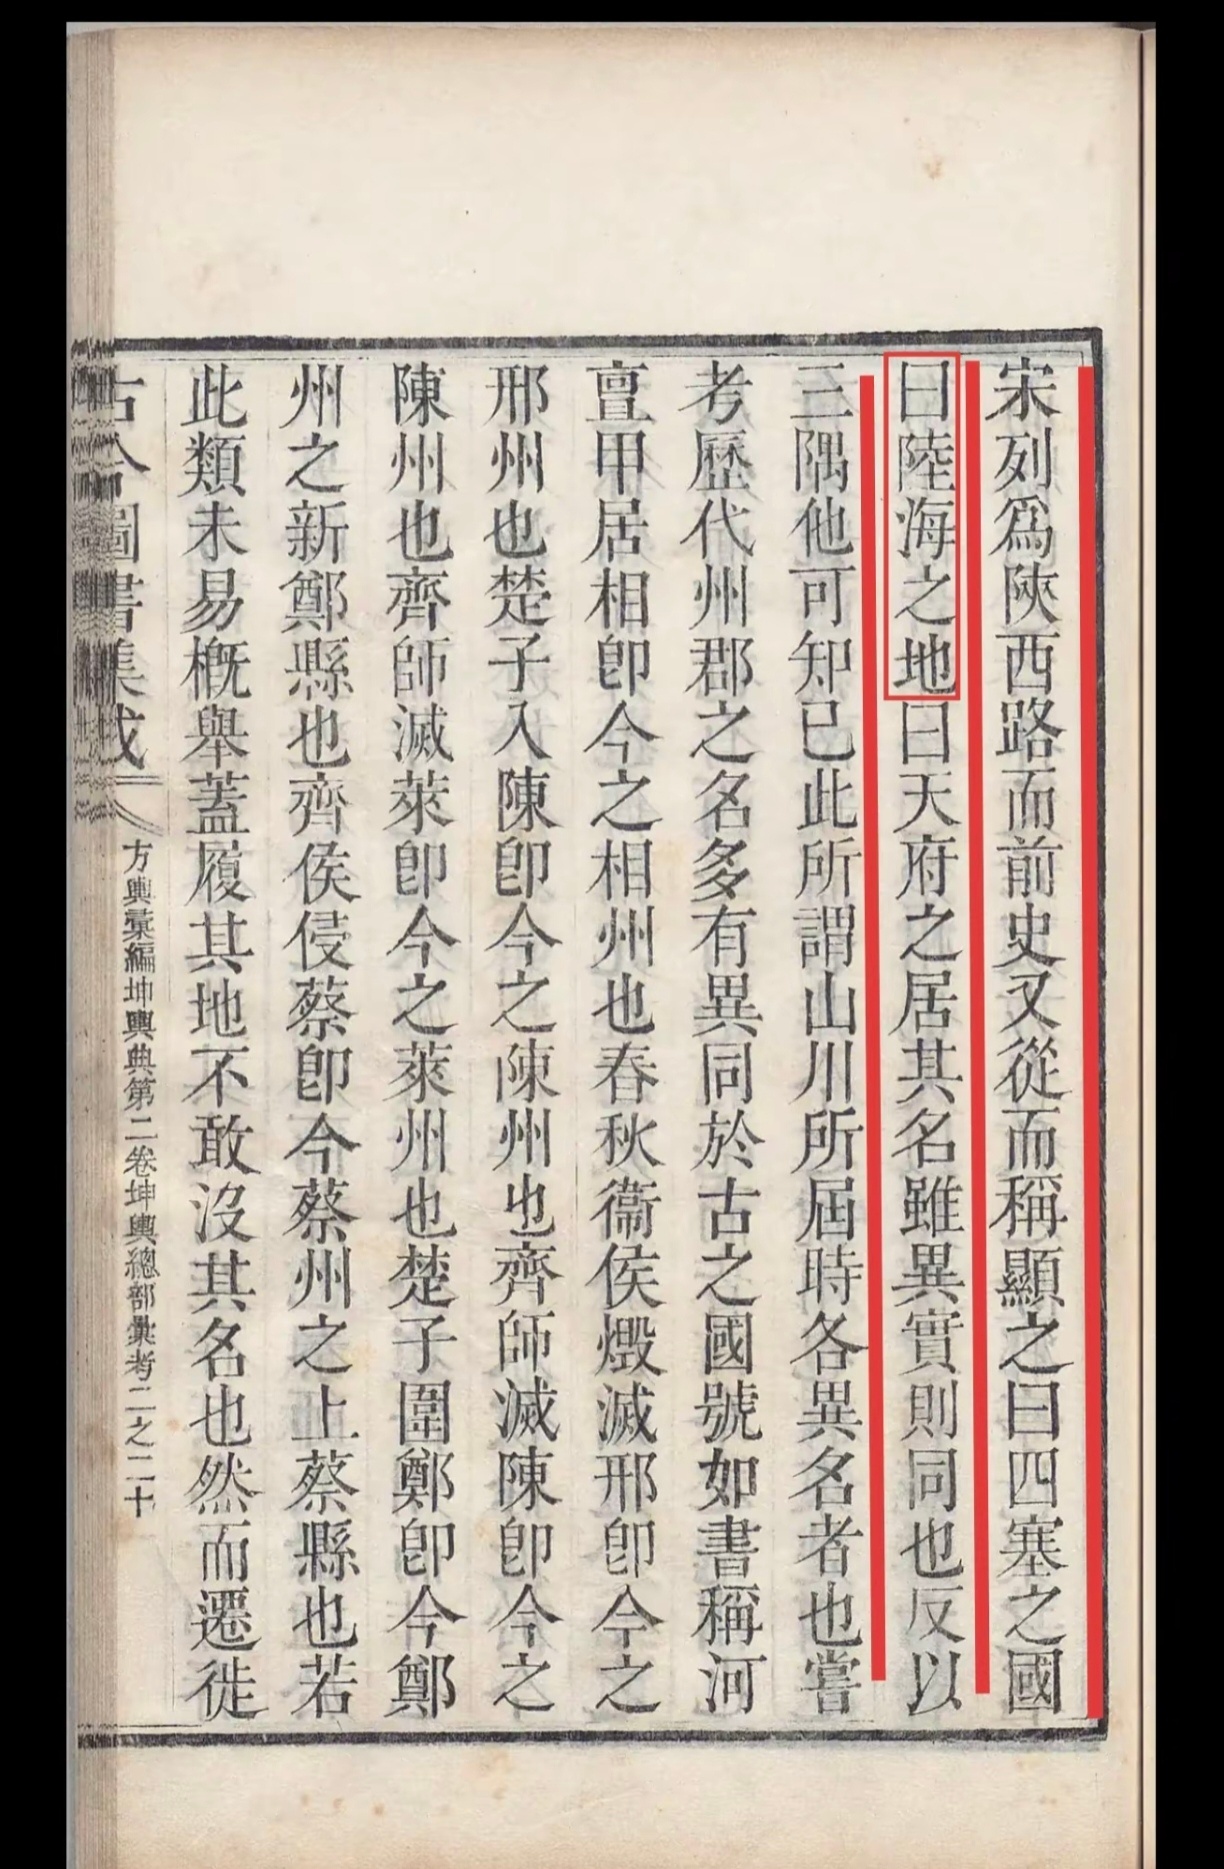 宋列爲陝西路而前史又從而稱顯之曰四塞之國
曰陸海之地曰天府之居其名雖異實則同也反以
三隅他可知已此所謂山川所屆時各異名者也嘗
考歷代州郡之名多有異同於古之國號如書稱河
亶甲居相卽今之相州也春秋衞侯燬滅邢卽今之
邢州也楚子入陳卽今之陳州也齊師滅陳卽今之
陳州也齊師滅萊卽今之萊州也楚子圍鄭卽今鄭
州之新鄭縣也齊侯侵蔡卽今蔡州之上蔡縣也若
此類未易槪舉蓋履其地不敢沒其名也然而遷徙
古今圖書集成
方輿彙編坤輿典第二卷坤輿總部彙考二之二十